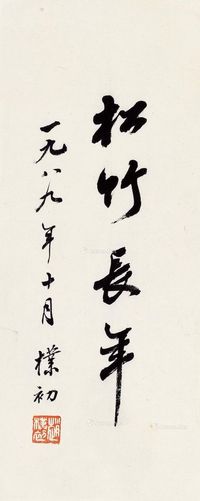 松竹長年
一九八九年十月 樸初
趙樸初